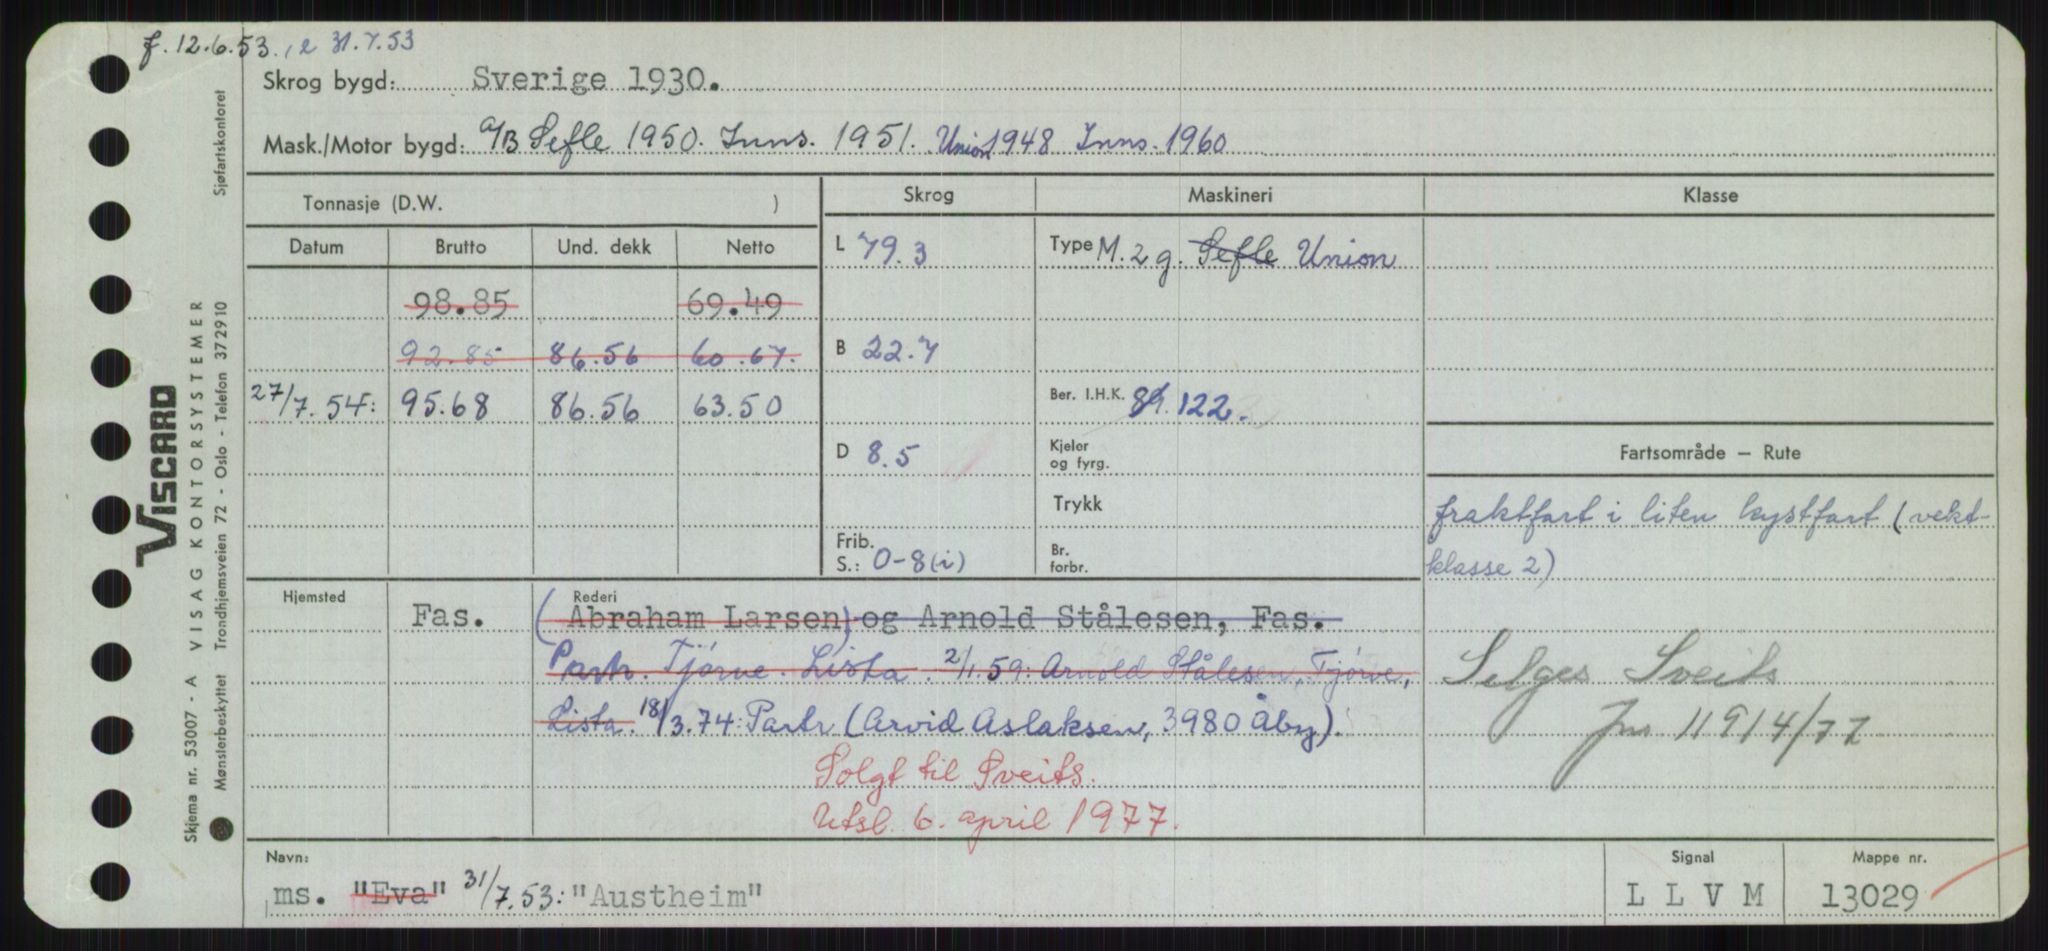 f. 12.6.53., e 31.7.53
Skrog bygd: Sverige 1930.
Mask./Motor bygd: A/B Sefle 1950. Inns. 1951. Union 1948 Inns. 1960
Tonnasje (D.W. )
Skrog
Maskineri
Klasse
Datum Brutto Und. dekk Netto
L 79.3
Type M. 2 g. Sefle Union
98.85 69.49
92.85 86.56 60.67.
B 22.7
27/7.54: 95.68 86.56 63.50
Ber. I.H.K. 122.
D 8.5
Kjeler
og fyrg.
Fartsområde — Rute
Trykk
fraktfart i liten kystfart (vekt-
klasse 2)
Frib.
S.: 0-8(i)
Br.
forbr.
Hjemsted
Fas.
Rederi
(Abraham Larsen) og Arnold Stålesen, Fas.
Partr. Tjørve. Lista. 2/1.59: Arnold Stålesen, Tjørve,
Lista. 18/3.74: Partr (Arvid Aslaksen, 3980 Åby).
Solgt til Sveits.
Utsl. 6. april 1977.
Selges Sveits
Jnr 11914/77
Navn:
ms. "Eva" 31/7.53: "Austheim"
Signal
L L V M
Mappe nr.
13029
VISCARD
Skjema nr. 53007 - A VISAG KONTORSYSTEMER
Mønsterbeskyttet Trondhjemsveien 72 - Oslo - Telefon 372910
Sjøfartskontoret